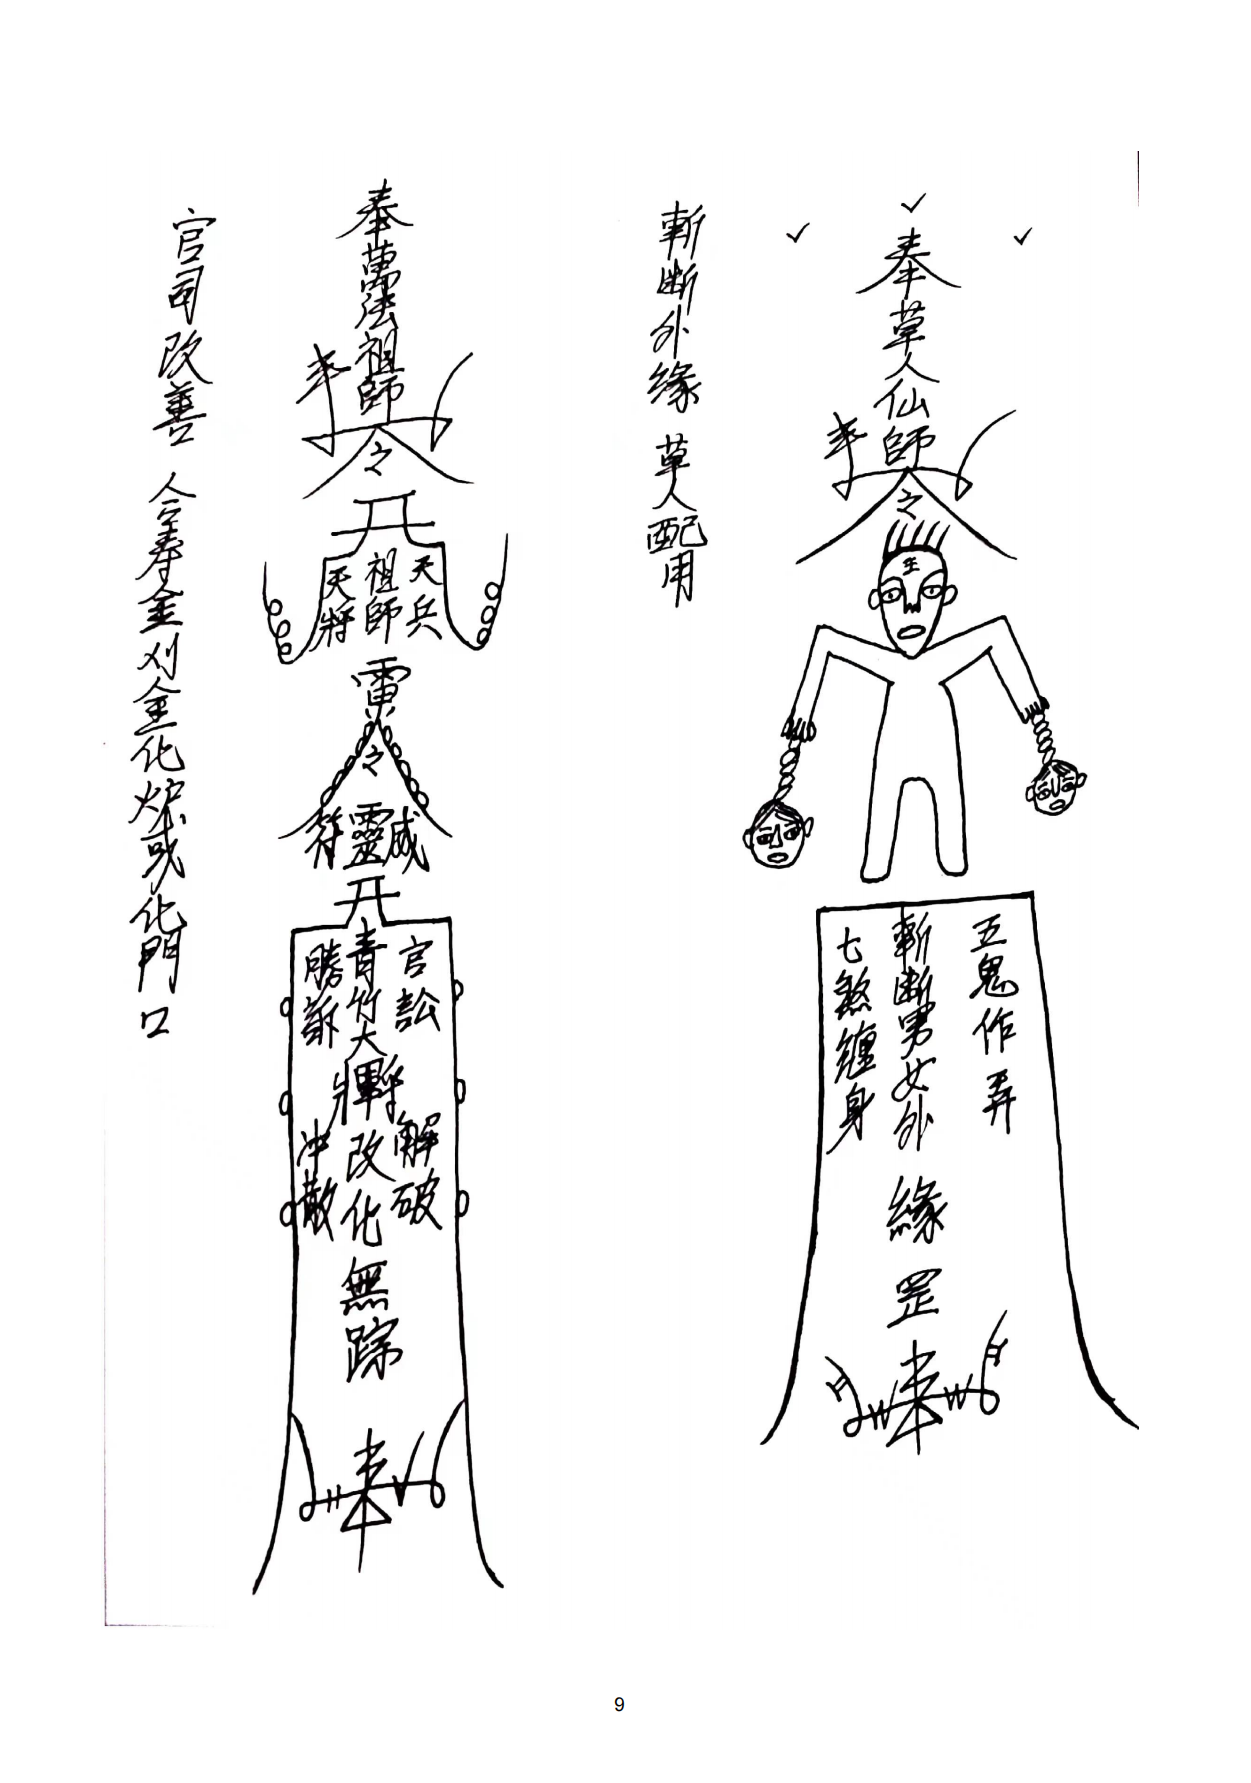 奉草人仙師
之
生
五鬼作弄
斬斷男女外緣罡
七煞纏身
斬斷外緣 草人配用
奉萬法祖師
之
天兵
祖師
天將
雷
之
符靈威
官訟
青竹大將軍
勝訴
解破
改化無踪
冲散
官司改善 合壽金刈金化炉或化門口
9